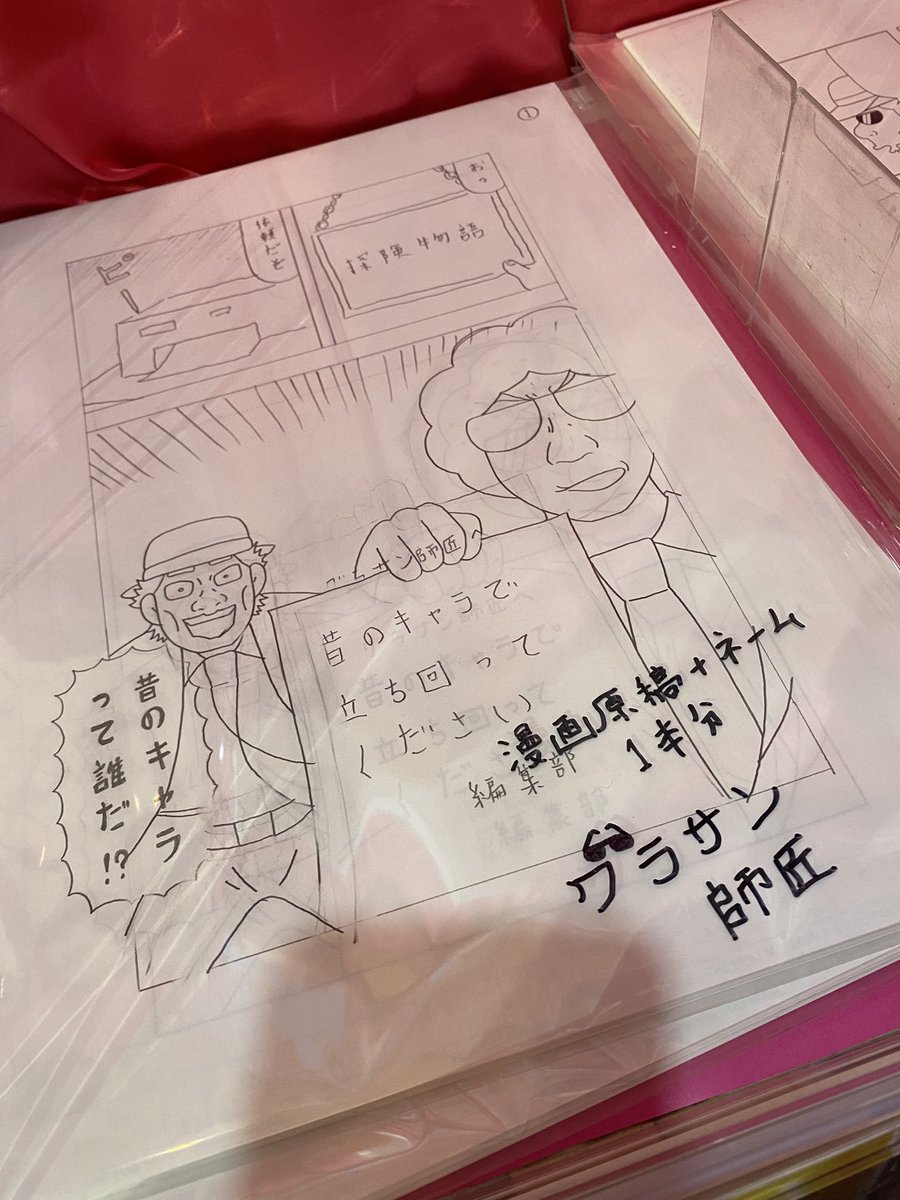 ①
おっ
探険物語
依頼だぞ
ピー
グラサン師匠へ
昔のキャラで
立ち回って
ください
編集部
昔のキャラ
って誰だ!?
漫画原稿+ネーム
1本分
グラサン
師匠